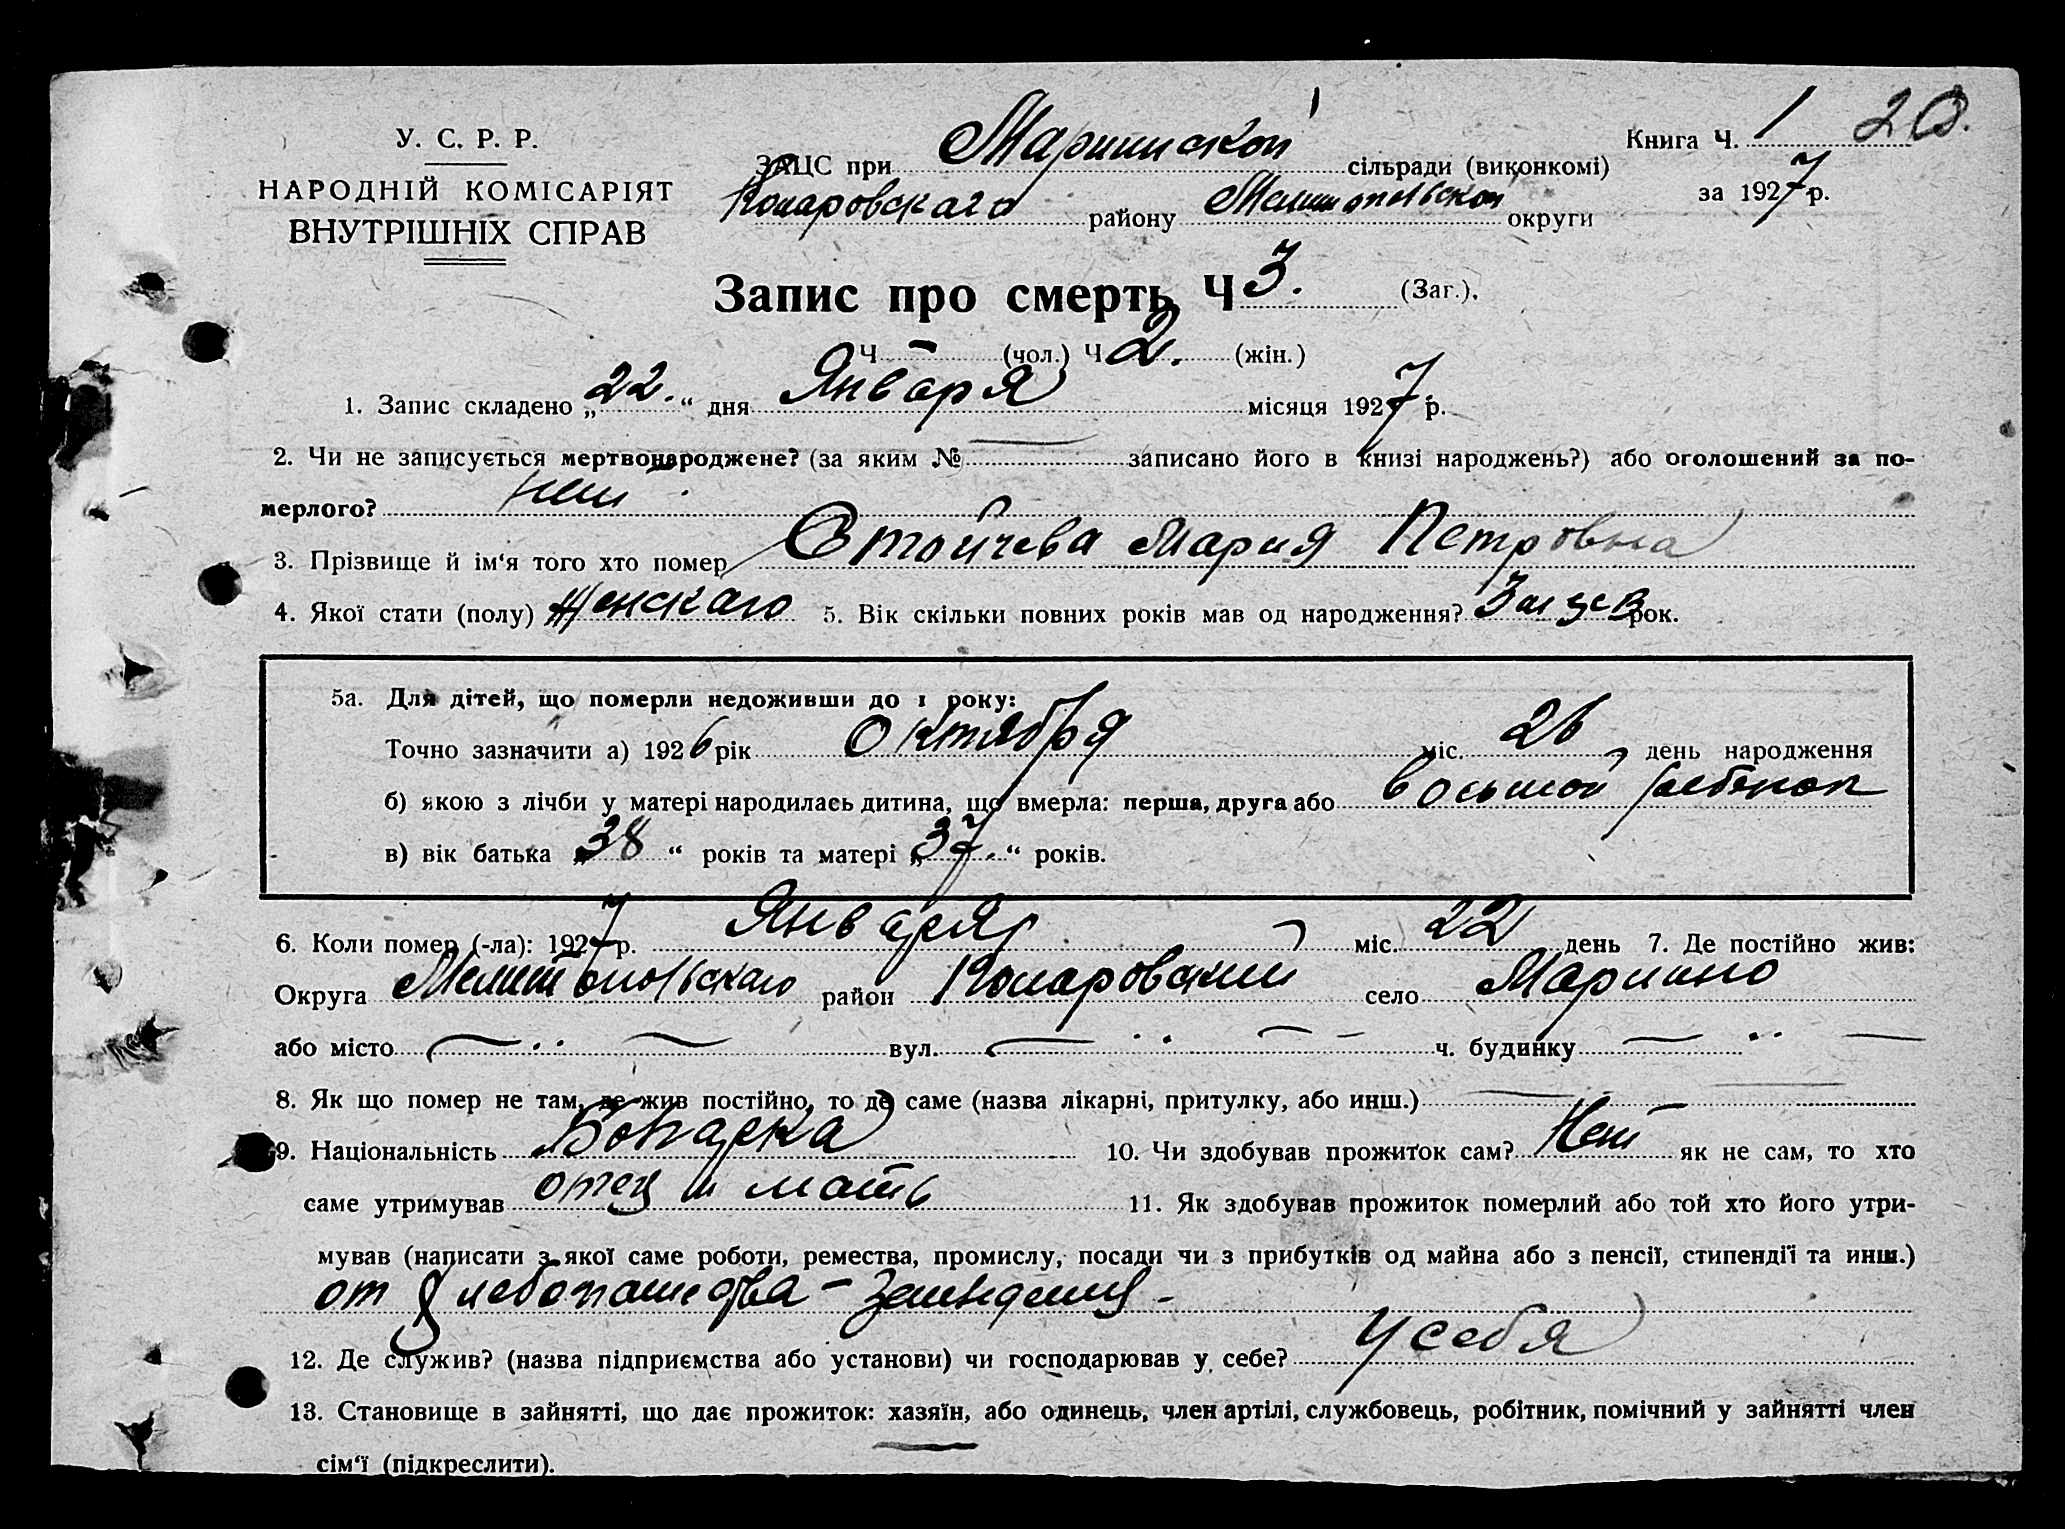 У. С. Р. Р.
НАРОДНІЙ КОМІСАРІЯТ
ВНУТРІШНІХ СПРАВ
ЗАЦС при Мариинской сільради (виконкомі)
Книга Ч. 1 20.
за 1927 р.
району Мелитопольской округи
Запис про смерть Ч 3. (Заг.).
Ч - (чол.) Ч 2. (жін.)
1. Запис складено „22.“ дня Января місяця 1927 р.
2. Чи не записується мертвонароджене? (за яким № записано його в книзі народжень?) або оголошений за по-
мерлого? нет
3. Прізвище й ім‘я того хто помер Стойчева Мария Петровна
4. Якої стати (полу) Женскаго 5. Вік скільки повних років мав од народження? 3 рок.
5а. Для дітей, що померли недоживши до 1 року:
Точно зазначити а) 1926 рік Октября міс. 26 день народження
б) якою з лічби у матері народилась дитина, що вмерла: перша, друга або восьмой ребенок
в) вік батька „38“ років та матері „37.“ років.
6. Коли помер (-ла): 1927 р. Января міс. 22 день 7. Де постійно жив:
Округа Мелитопольскаго район село Марино
або місто вул. ч. будинку
8. Як що помер не там, де жив постійно, то де саме (назва лікарні, притулку, або инш.)
9. Національність Болгарка 10. Чи здобував прожиток сам? Нет як не сам, то хто
саме утримував отец и мать 11. Як здобував прожиток померлий або той хто його утри-
мував (написати з якої саме роботи, ремества, промислу, посади чи з прибутків од майна або з пенсії, стипендії та инш.)
от хлебопашества -
12. Де служив? (назва підприємства або установи) чи господарював у себе? у себя
13. Становище в зайнятті, що дає прожиток: хазяїн, або одинець, член артілі, службовець, робітник, помічний у зайнятті член
сім‘ї (підкреслити).